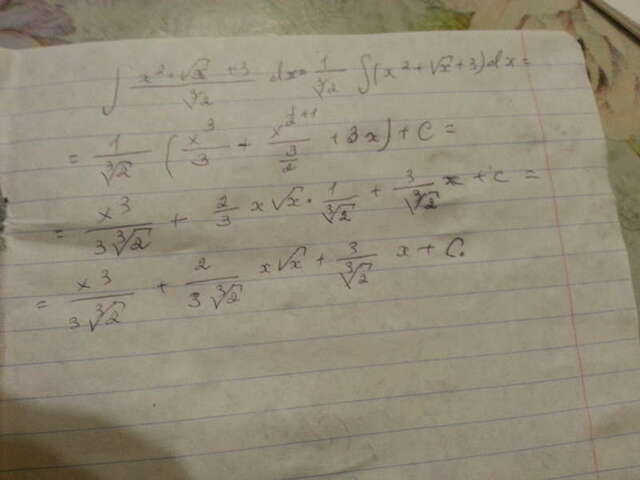 ∫ (x² + √x + 3)/∛2 dx = 1/∛2 ∫(x² + √x + 3)dx =
= 1/∛2 (x³/3 + x^(1/2+1)/(3/2) + 3x) + C =
= x³/(3∛2) + 2/3 x√x · 1/∛2 + 3/∛2 x + C =
= x³/(3∛2) + 2/(3∛2) x√x + 3/∛2 x + C.